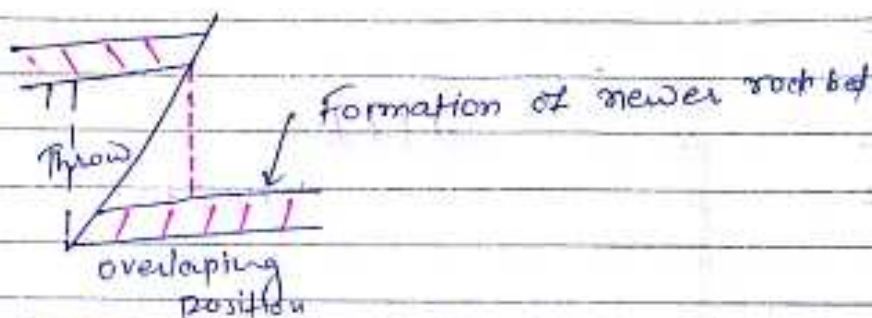 Formation of newer rock bed
Throw
overlaping
position